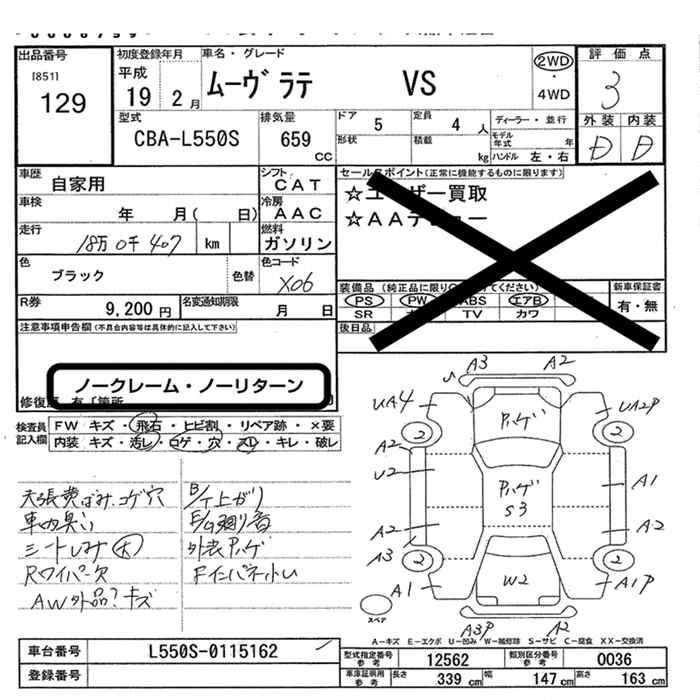 出品番号
[851]
129
初度登録年月
平成
19 2月
車名・グレード
ムーヴラテ VS
2WD
・
4WD
評価点
3
外装 内装
D D
型式
CBA-L550S
排気量
659
CC
ドア 5
定員 4 人
形状
積載 kg
ディーラー・並行
モデル年式 年
ハンドル 左・右
車歴
自家用
シフト
CAT
車検
年 月( 日)
冷房
AAC
走行
18万0千407 km
燃料
ガソリン
色
ブラック
色替
色コード
X06
R券
9,200円
名変通知期限
月 日
セールスポイント(正常に機能するものに限ります)
☆ユーザー買取
☆AAデビュー
装備品
PS PW ABS エアB
SR TV カワ
新車保証書
有・無
後日品
注意事項申告欄(不具合内容等は具体的に記入して下さい)
ノークレーム・ノーリターン
検査員
記入欄
FW キズ・飛石・ヒビ割・リペア跡・×要
内装 キズ・汚レ・コゲ・穴・スレ・キレ・破レ
天張黄ばみ、コゲ穴
車内臭い
シートしみ大
Rワイパー欠
AW外品?キズ
B/T上がり
E/G廻り音
外装ハゲ
A3 A2
UA4
UA2P
ハゲ
2 2
A2
U2
A1
ハゲ
S3
A2
A2
A3
2 2
A1
A1P
W2
A3P
A2
スペア
A－キズ E－エクボ U－凹み W－補修跡 S－サビ C－腐食 XX－交換済
車台番号
L550S-0115162
登録番号
型式指定番号
参考
12562
類別区分番号
参考
0036
車庫証明用
参考
長さ 339 cm
幅 147 cm
高さ 163 cm